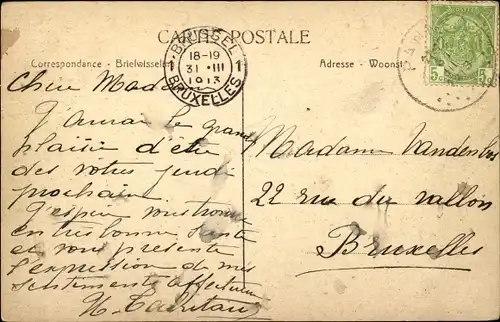 CARTE POSTALE
Correspondance - Briefwisseling
Adresse - Woonst
1 BRUSSEL 1
18-19
31 III
1913
BRUXELLES
5c 5c
Chère Madame
J'aurai le grand
plaisir d'être
des vôtres jeudi
prochain.
J'espère vous trouver
en très bonne santé
et vous présente
l'expression de mes
sentiments affectueux
Madame Vandenbos
22 rue du vallon
Bruxelles